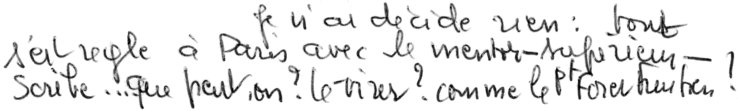 je n'ai décidé rien : tout
s'est réglé à Paris avec le mentor-supérieur-
scribe ... que peut-on ? Le virer ? comme le Pt